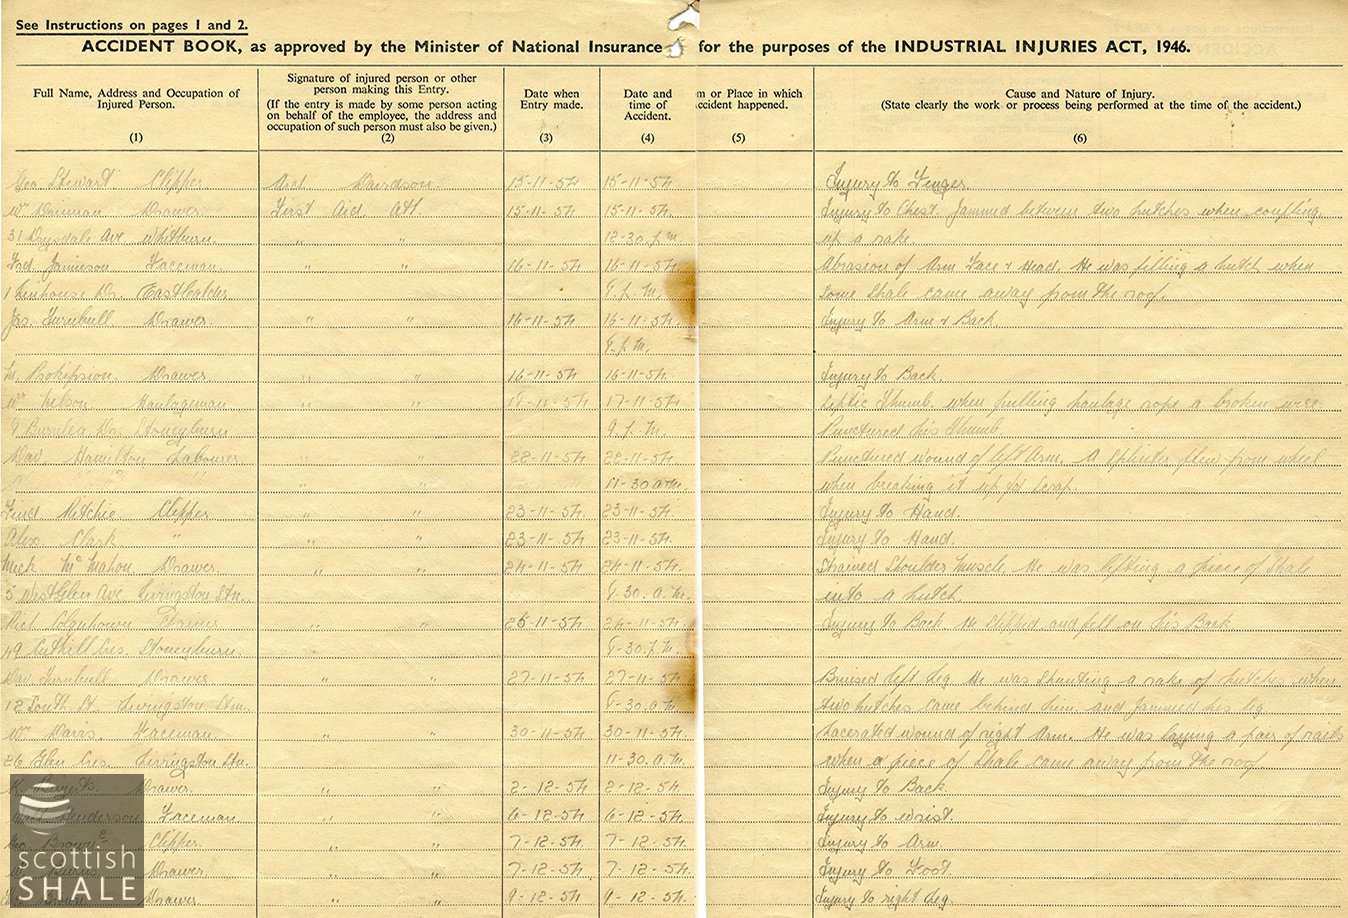 See Instructions on pages 1 and 2.
ACCIDENT BOOK, as approved by the Minister of National Insurance for the purposes of the INDUSTRIAL INJURIES ACT, 1946.
Full Name, Address and Occupation of Injured Person. (1)
Signature of injured person or other person making this Entry. (If the entry is made by some person acting on behalf of the employee, the address and occupation of such person must also be given.) (2)
Date when Entry made. (3)
Date and time of Accident. (4)
m or Place in which ccident happened. (5)
Cause and Nature of Injury. (State clearly the work or process being performed at the time of the accident.) (6)
Geo Stewart Clipper Arch Davidson 15-11-54 15-11-54 Injury to Finger.
Wm Drawer First Aid Att. 15-11-54 15-11-54 Injury to Chest. Jammed between two hutches when coupling
31 Ave Whitburn. " " 12-30. p.m. up a rake.
Fd. Jamieson Faceman. " " 16-11-54 16-11-54 Abrasion of Arm Face & Head. He was filling a hutch when
1 Linhouse Dr. East Calder p.m. some shale came away from the roof.
Jas. Turnbull Drawer " " 16-11-54 16-11-54 Injury to Arm & Back.
p.m.
Drawer " " 16-11-54 16-11-54. Injury to Back.
Wm Nelson Haulageman " " 18-11-54 17-11-54 Septic Thumb. when pulling haulage rope a broken wire
Burnlea Dr. Stoneyburn 9 p.m. Punctured his Thumb.
Dav. Hamilton Labourer " " 22-11-54 22-11-54. Punctured wound of left Arm. A splinter flew from wheel
" " 11-30 a.m. when breaking it up for scrap.
Ritchie Clipper " " 23-11-54. 23-11-54. Injury to Hand.
Alex Clark " " " 23-11-54 23-11-54. Injury to Hand.
Mick McMahon Drawer " " 24-11-54 24-11-54. Strained Shoulder Muscle. He was lifting a piece of shale
5 West Glen Ave Livingston Stn. 30. a.m. into a hutch.
Rich " " 25-11-54 24-11-54 Injury to Back. He slipped and fell on his Back.
49 Cuthill Cres. Stoneyburn. 30 p.m.
Dav. Turnbull Drawer " " 27-11-54 27-11-54 Bruised left leg. He was shunting a rake of hutches when
12 South St. Livingston Stn. 30. a.m. two hutches came behind him and jammed his leg
Wm Davis. Faceman " " 30-11-54 30-11-54. Lacerated wound of right Arm. He was laying a pair of rails
26 Glen Cres. Livingston Stn. 11-30. a.m. when a piece of shale came away from the roof
Drawer " " 2-12-54 2-12-54. Injury to Back.
Henderson Faceman " " 6-12-54 6-12-54. Injury to wrist.
Geo. Brown Clipper. " " 7-12-54. 7-12-54. Injury to Arm
Drawer " " 7-12-54 7-12-54. Injury to Foot
Brown Drawer " " 9-12-54 9-12-54. Injury to right leg.
scottish
SHALE